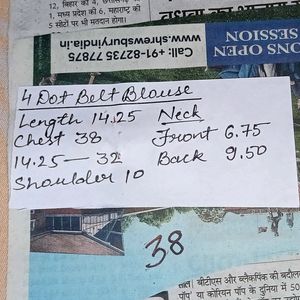 12, बिहार की 4,
1, मध्य प्रदेश की 6, महाराष्ट्र की
5 सीटों पर भी मतदान होगा।
ONS OPEN
SESSION
Call: +91-82735 77875
www.shrewsburyindia.in
4 Dot Belt Blouse
Length 14.25 Neck
Chest 38 Front 6.75
14.25 — 32 Back 9.50
Shoulder 10
38
बीटीएस और ब्लैकपिंक की बदौलत
पॉप' या कोरियन पॉप के दुनिया में 50